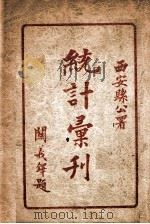 西安縣公署
統計彙刊
關義鐸題